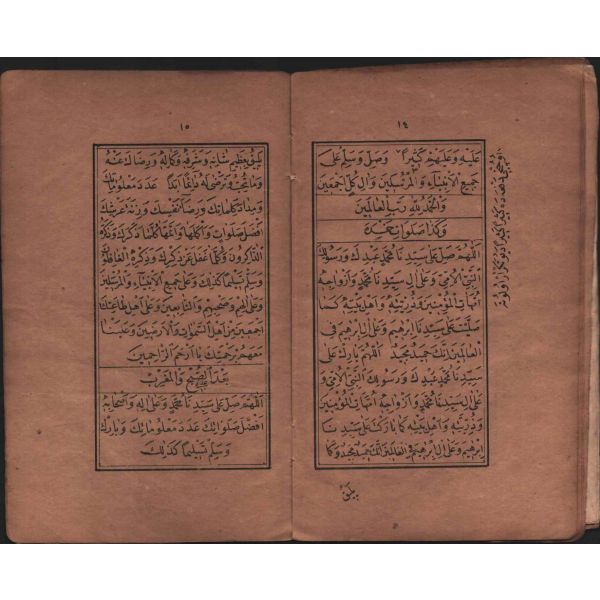 ١٤
عَلَيْهِ وَعَلَيْهِمْ كَثِيرًا وَصَلِّ وَسَلِّمْ عَلَى
جَمِيعِ الْاَنْبِيَاءِ وَالْمُرْسَلِينَ وَاٰلِ كُلٍّ اَجْمَعِينَ
وَالْحَمْدُ لِلّٰهِ رَبِّ الْعَالَمِينَ
وَكَذَا صَلَوَاتِ خَمْسَه
اَللّٰهُمَّ صَلِّ عَلَى سَيِّدِنَا مُحَمَّدٍ عَبْدِكَ وَرَسُولِكَ
النَّبِيِّ الْاُمِّيِّ وَعَلَى اٰلِ سَيِّدِنَا مُحَمَّدٍ وَاَزْوَاجِهِ
اُمَّهَاتِ الْمُؤْمِنِينَ وَذُرِّيَّتِهِ وَاَهْلِ بَيْتِهِ كَمَا
صَلَّيْتَ عَلَى سَيِّدِنَا اِبْرٰهِيمَ وَعَلَى اٰلِ اِبْرٰهِيمَ فِي
الْعَالَمِينَ اِنَّكَ حَمِيدٌ مَجِيدٌ اَللّٰهُمَّ بَارِكْ عَلَى
سَيِّدِنَا مُحَمَّدٍ عَبْدِكَ وَرَسُولِكَ النَّبِيِّ الْاُمِّيِّ وَ
عَلَى اٰلِ سَيِّدِنَا مُحَمَّدٍ وَاَزْوَاجِهِ اُمَّهَاتِ الْمُؤْمِنِينَ
وَذُرِّيَّتِهِ وَاَهْلِ بَيْتِهِ كَمَا بَارَكْتَ عَلَى سَيِّدِنَا
اِبْرٰهِيمَ وَعَلَى اٰلِ اِبْرٰهِيمَ فِي الْعَالَمِينَ اِنَّكَ حَمِيدٌ مَجِيدٌ وَكَمَا
يَلِيقُ
١٥
يَلِيقُ بِعَظِيمِ شَانِهِ وَشَرَفِهِ وَكَمَالِهِ وَرِضَاكَ عَنْهُ
وَمَا تُحِبُّ وَتَرْضَى لَهُ دَائِمًا اَبَدًا عَدَدَ مَعْلُومَاتِكَ
وَمِدَادَ كَلِمَاتِكَ وَرِضَاءَ نَفْسِكَ وَزِنَةَ عَرْشِكَ
اَفْضَلَ صَلَوَاتٍ وَاَكْمَلَهَا وَاَتَمَّهَا كُلَّمَا ذَكَرَكَ وَذَكَرَهُ
الذَّاكِرُونَ وَكُلَّمَا غَفَلَ عَنْ ذِكْرِكَ وَذِكْرِهِ الْغَافِلُونَ
وَسَلِّمْ تَسْلِيمًا كَذٰلِكَ وَعَلَى جَمِيعِ الْاَنْبِيَاءِ وَالْمُرْسَلِينَ
وَعَلَى اٰلِهِمْ وَصَحْبِهِمْ وَالتَّابِعِينَ وَعَلَى اَهْلِ طَاعَتِكَ
اَجْمَعِينَ مِنْ اَهْلِ السَّمٰوَاتِ وَالْاَرَضِينَ وَعَلَيْنَا
مَعَهُمْ بِرَحْمَتِكَ يَا اَرْحَمَ الرَّاحِمِينَ
بَعْدَ الصُّبْحِ وَالْمَغْرِبِ
اَللّٰهُمَّ صَلِّ عَلَى سَيِّدِنَا مُحَمَّدٍ وَعَلَى اٰلِهِ وَاَصْحَابِهِ
اَفْضَلَ صَلَوَاتِكَ عَدَدَ مَعْلُومَاتِكَ وَبَارِكْ
وَسَلِّمْ تَسْلِيمًا كَذٰلِكَ